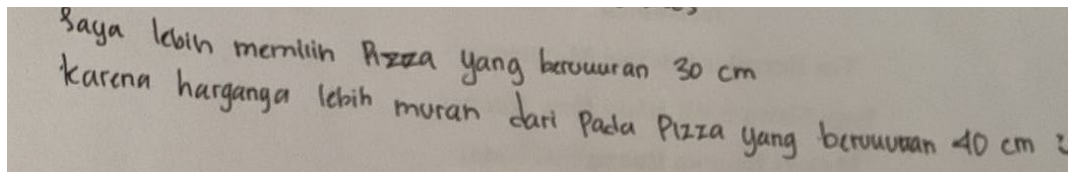 Saya lebih memilih Pizza yang berukuran 30 cm
karena harganga lebih murah dari pada Pizza yang berukuran 40 cm